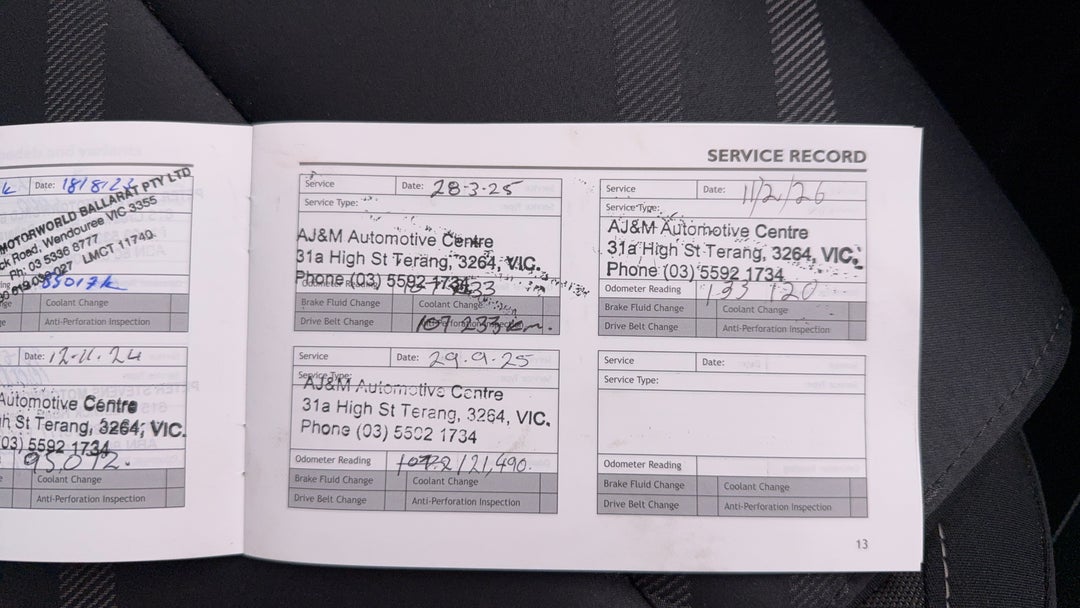 Date: 18/8/23
MOTORWORLD BALLARAT PTY LTD
Road, Wendouree VIC 3355
Ph: 03 5336 8777
LMCT 11740
Coolant Change
Anti-Perforation Inspection
Date: 12.11.24
Automotive Centre
St Terang, 3264, VIC.
(03) 5592 1734
95012.
Coolant Change
Anti-Perforation Inspection
SERVICE RECORD
Service Date: 28-3-25
Service Type:
AJ&M Automotive Centre
31a High St Terang, 3264, VIC.
Phone (03) 5592 1734
Odometer Reading
Brake Fluid Change Coolant Change
Drive Belt Change Anti-Perforation Inspection
107 233 km.
Service Date: 29.9.25
Service Type:
AJ&M Automotive Centre
31a High St Terang, 3264, VIC.
Phone (03) 5592 1734
Odometer Reading 121,490.
Brake Fluid Change Coolant Change
Drive Belt Change Anti-Perforation Inspection
Service Date: 11/2/26
Service Type:
AJ&M Automotive Centre
31a High St Terang, 3264, VIC.
Phone (03) 5592 1734
Odometer Reading 133 120
Brake Fluid Change Coolant Change
Drive Belt Change Anti-Perforation Inspection
Service Date:
Service Type:
Odometer Reading
Brake Fluid Change Coolant Change
Drive Belt Change Anti-Perforation Inspection
13